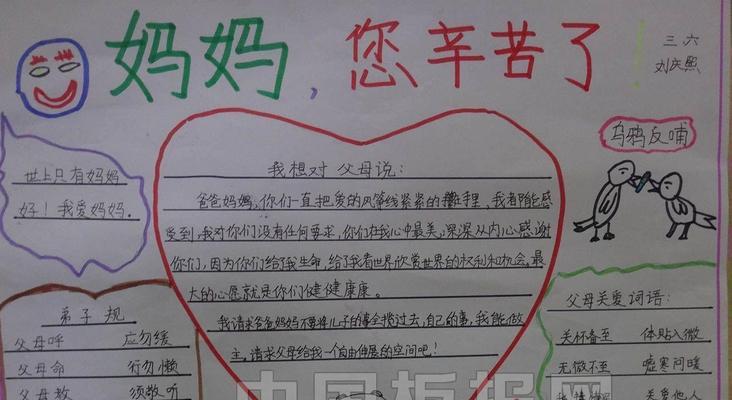 妈妈，您辛苦了
三 六
刘庆熙
世上只有妈妈
好！我爱妈妈.
乌鸦反哺
我想对父母说：
爸爸妈妈，你们一直把爱的风筝线紧紧的攥在手里，我都能感
受到，我对你们没有任何要求，你们在我心中最美，深深从内心感谢
你们，因为你们给了我生命，给了我看世界欣赏世界的权利和机会，最
大的心愿就是你们健健康康。
我请求爸爸妈妈不要将儿子的事全揽过去，自己的事，我能做
主，请求父母给我一个自由伸展的空间吧！
弟子规
父母呼 应勿缓
父母命 行勿懒
父母教 须敬听
父母关爱词语：
关怀备至 体贴入微
无微不至 嘘寒问暖
关爱他人
中国板报网